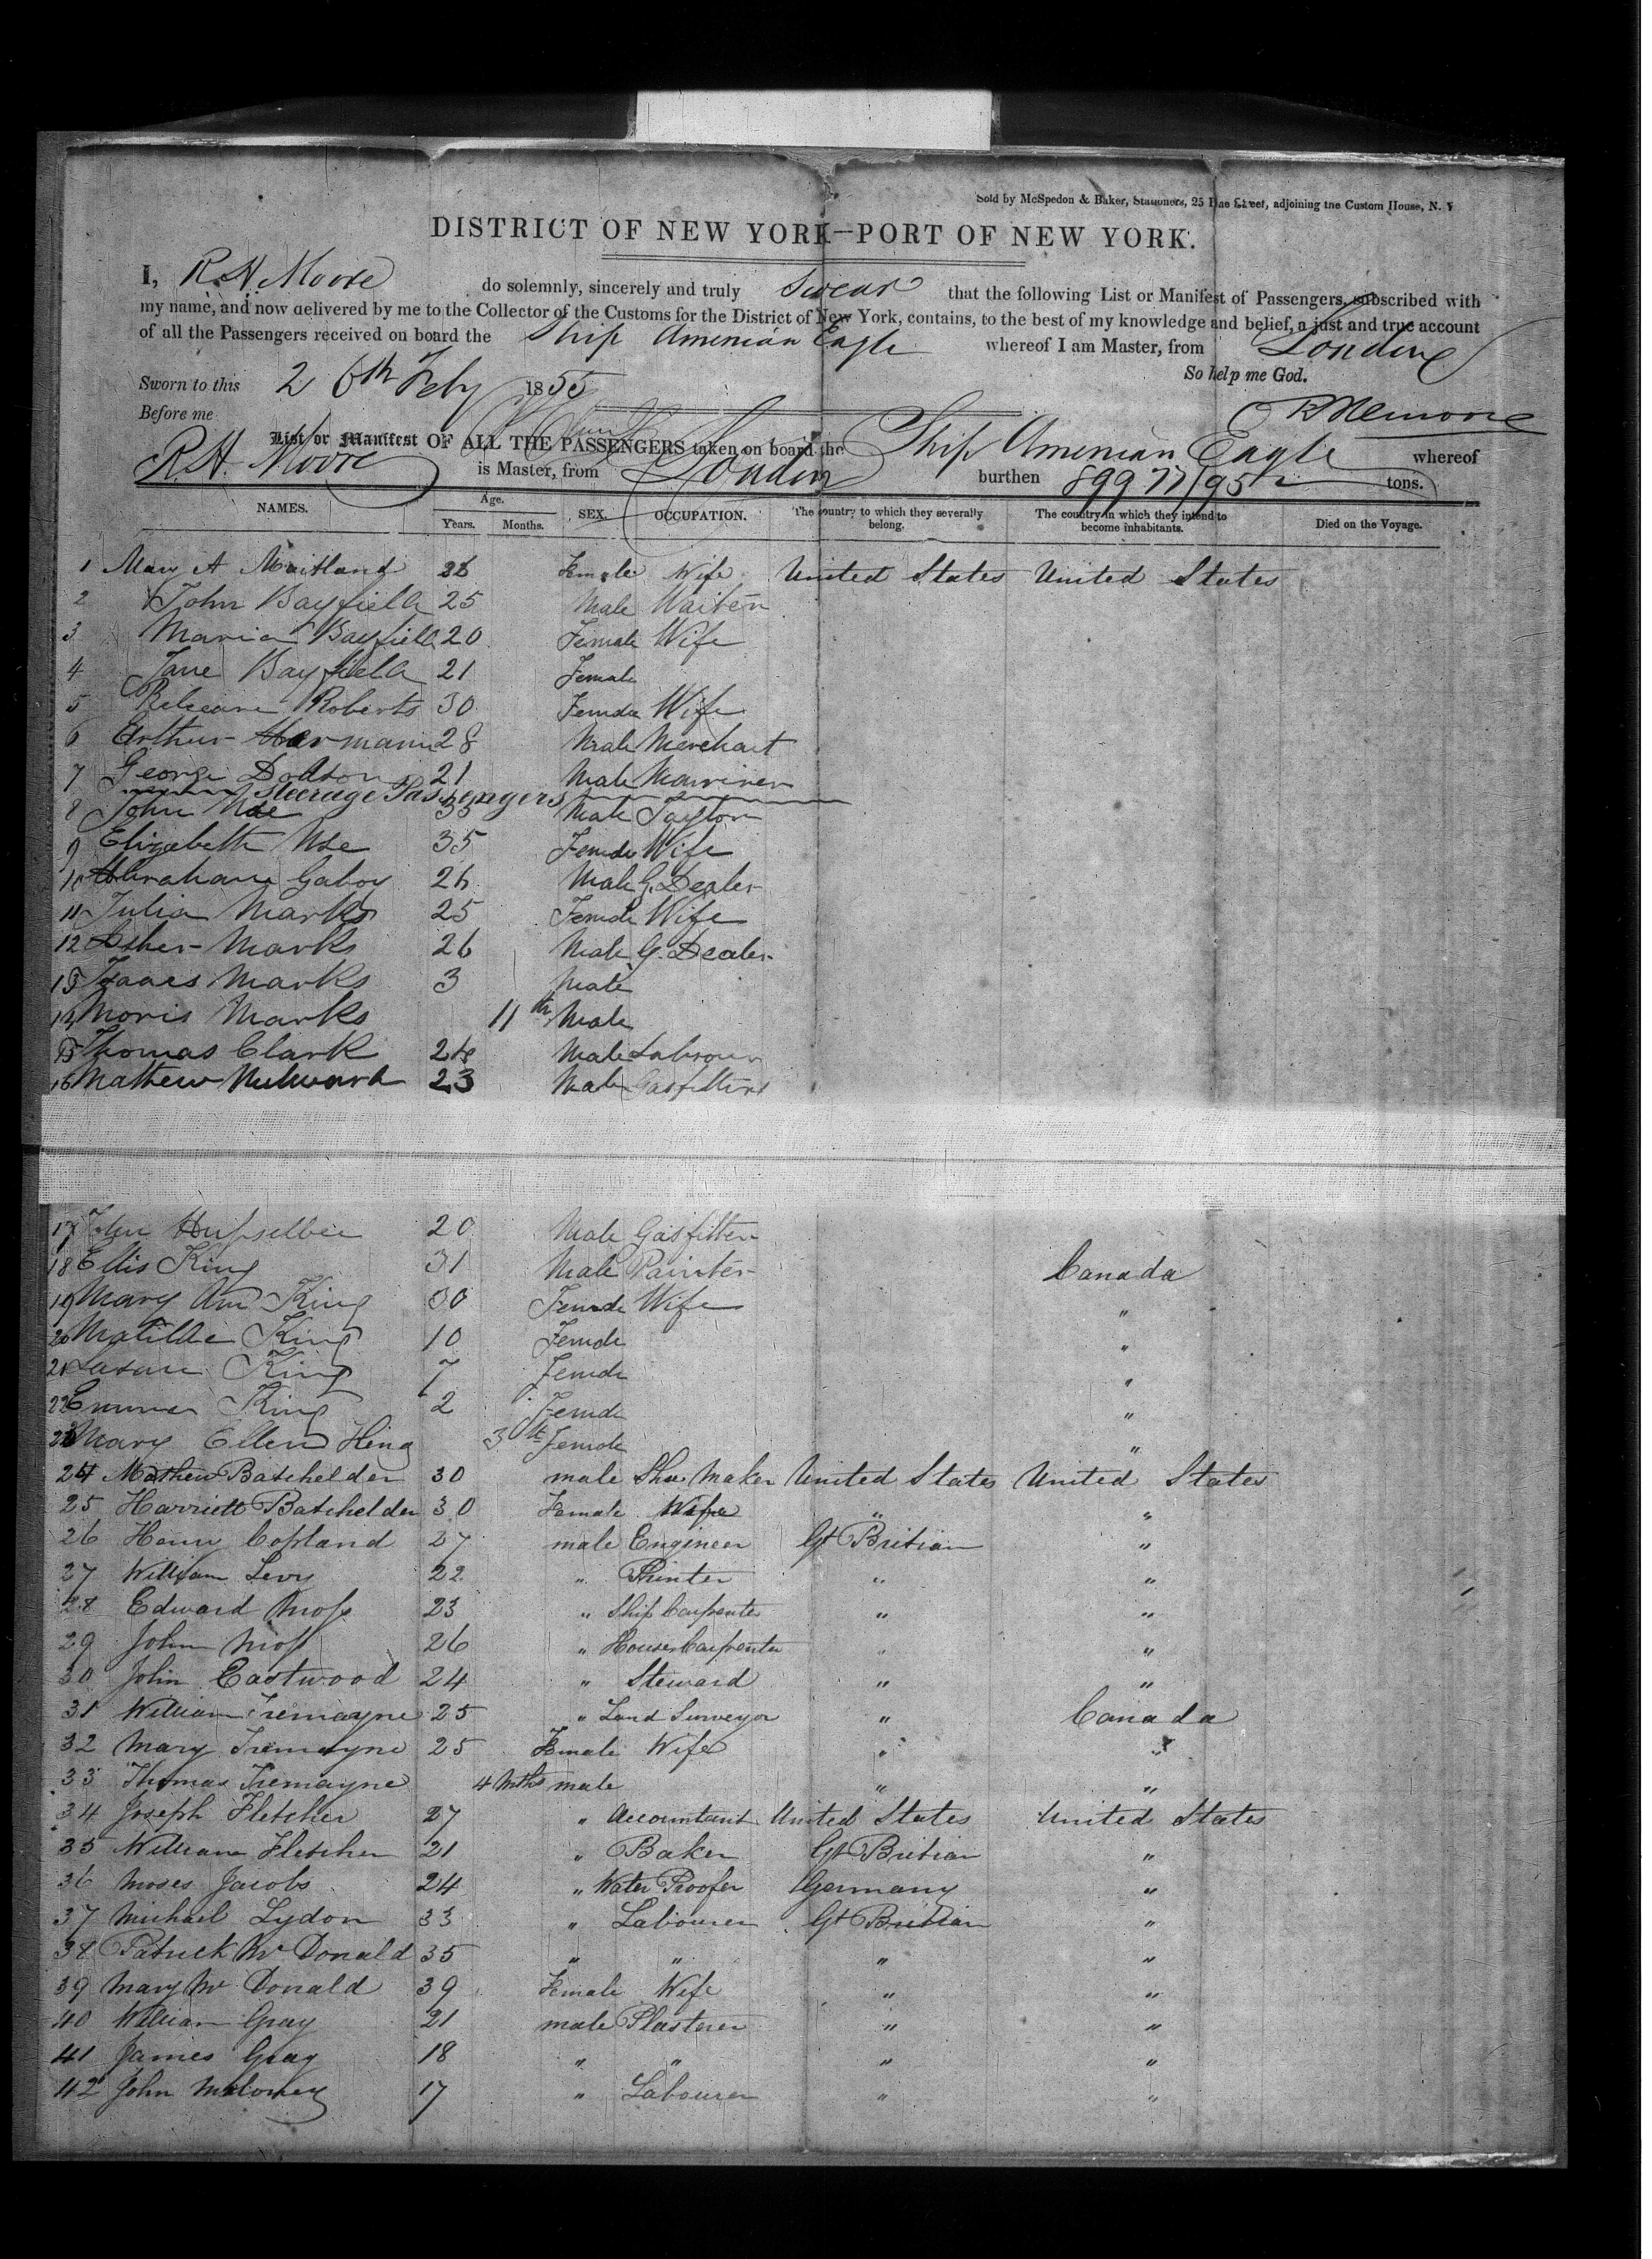 Sold by McSpedon & Baker, Stationers, 25 Pine Street, adjoining the Custom House, N. Y
DISTRICT OF NEW YORK—PORT OF NEW YORK.
I, R. H. Moore do solemnly, sincerely and truly swear that the following List or Manifest of Passengers, subscribed with
my name, and now delivered by me to the Collector of the Customs for the District of New York, contains, to the best of my knowledge and belief, a just and true account
of all the Passengers received on board the Ship Amerian Eagle whereof I am Master, from London
So help me God.
Sworn to this 26th Feby 1855
Before me
List or Manifest OF ALL THE PASSENGERS taken on board the Ship Amerian Eagle whereof
R. H. Moore is Master, from London burthen 899 77/95 tons.
NAMES. Age. Years. Months. SEX. OCCUPATION. The country to which they severally belong. The country in which they intend to become inhabitants. Died on the Voyage.
1 Mary A Maitland 26 Female Wife United States United States
2 John Bayfield 25 Male Waiter
3 Maria Bayfield 20 Female Wife
4 Jane Bayfield 21 Female
5 Roberts 30 Female Wife
6 Arthur Hermann 28 Male Merchant
7 George Dodson 21 Male Marriner
Steerage Passengers
8 John 35 Male Taylor
9 Elizabeth 35 Female Wife
10 Abraham Gaboy 26 Male G. Dealer
11 Julia Marks 25 Female Wife
12 Asher Marks 26 Male G. Dealer
13 Isaacs Marks 3 Male
14 Moris Marks 11 m Male
15 Thomas Clark 24 Male Labourer
16 Mathew 23 Male Gasfitter
17 John 20 Male Gasfitter
18 Ellis King 31 Male Painter Canada
19 Mary Ann King 30 Female Wife "
20 Matilda King 10 Female "
21 King 7 Female "
22 Emma King 2 Female "
23 Mary Ellen King 3 Female "
24 Mathew Batchelder 30 male Shoe Maker United States United States
25 Harriett Batchelder 30 Female Wife " "
26 Henry Copland 27 male Engineer Gt Britian "
27 William Levy 22 " Printer " "
28 Edward Moss 23 " Ship Carpenter " "
29 John Moss 26 " House Carpenter " "
30 John Eastwood 24 " Steward " "
31 William Tremayne 25 " Land Surveyor " Canada
32 Mary Tremayne 25 Female Wife " "
33 Thomas Tremayne 4 Mths male " "
34 Joseph Fletcher 27 " Accountant United States United States
35 William Fletcher 21 " Baker Gt Britian "
36 Moses Jacobs 24 " Water Proofer Germany "
37 Michael Lydon 33 " Labourer Gt Britian "
38 Patrick Mc Donald 35 " " " "
39 Mary Mc Donald 39 Female Wife " "
40 William Gray 21 male Plasterer " "
41 James Gray 18 " " " "
42 John Moloney 17 " Labourer " "